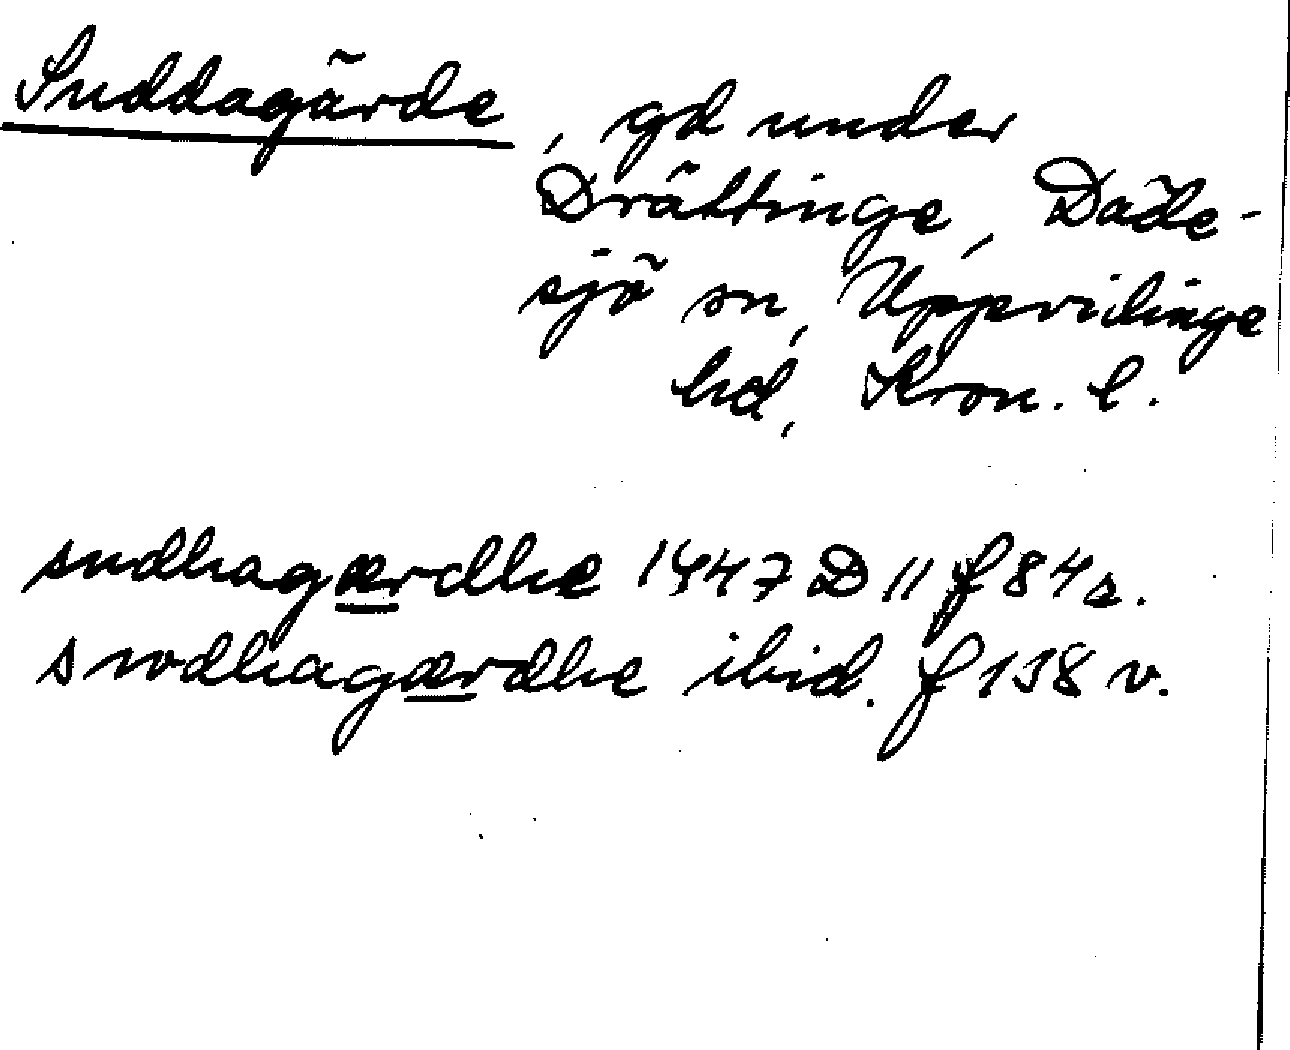 Suddagärde, gd under
Drättinge, Däde-
sjö sn, Uppvidinge
hd, Kron. l.
sudhagærdhe 1447 D 11 f 84 r.
swdhagærdhe ibid. f 138 v.